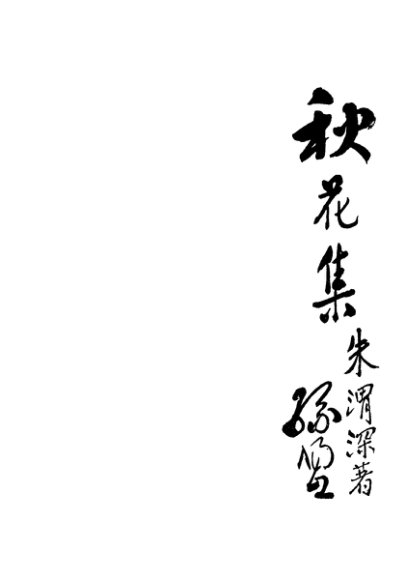 秋花集
朱渭深著